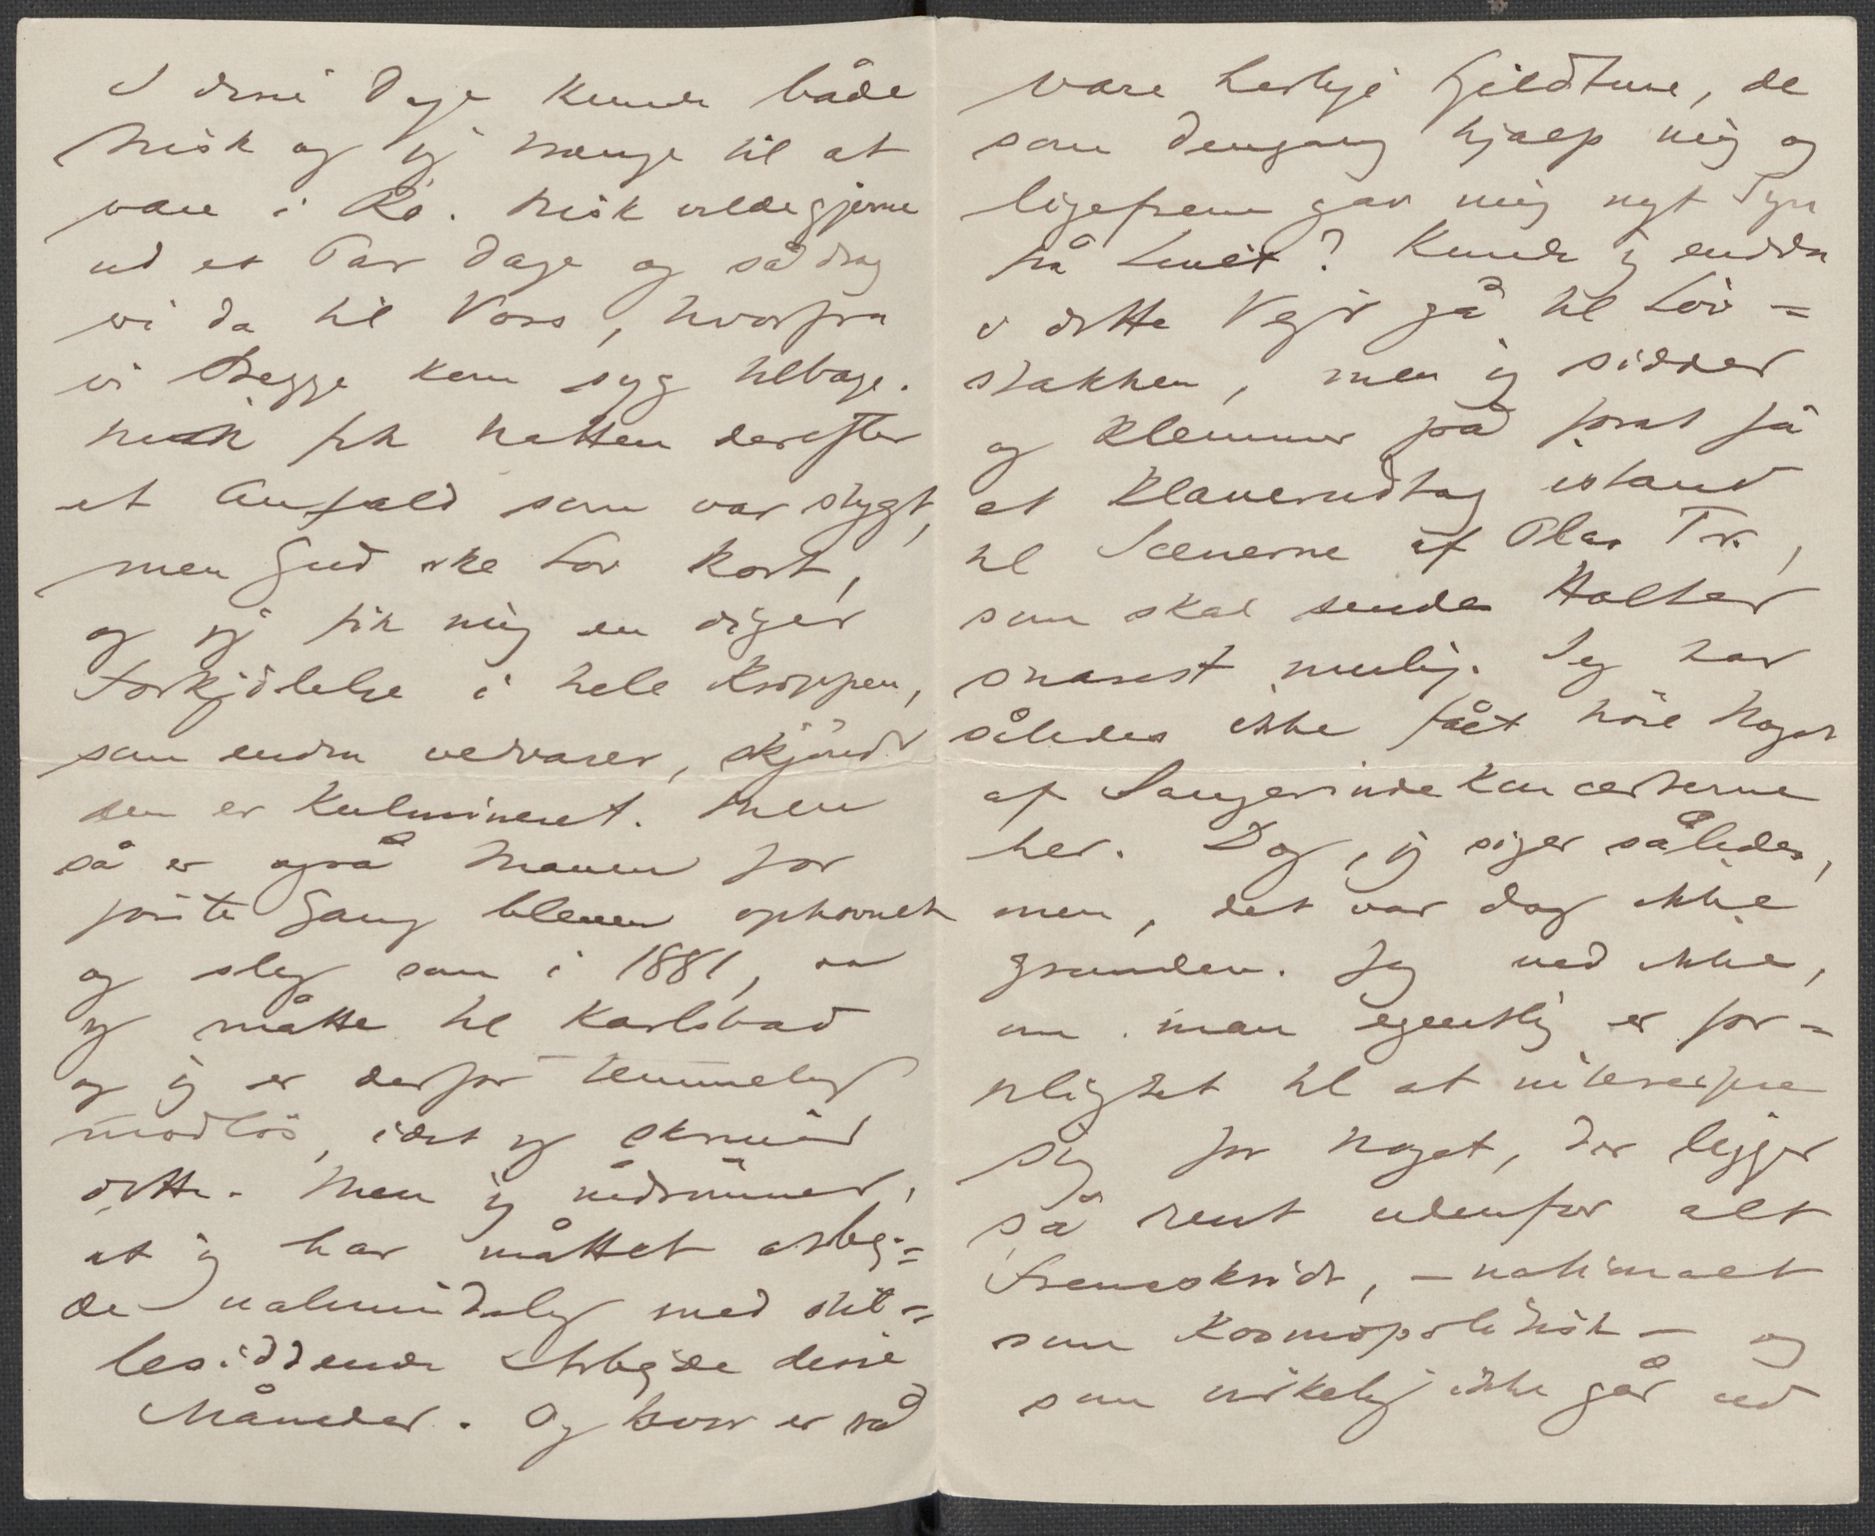 I disse Dage kunde både
Misk og jeg trænge til at
være i Ro. Misk vilde gjerne
ud et Par Dage og så drog
vi da til Voss, hvorfra
vi Begge kom syg tilbage.
Misk fik Natten derefter
et Anfald som var stygt,
men Gud ske Lov kort,
og jeg fik mig en diger
Forkjölelse i hele Kroppen,
som endnu vedvarer, skjöndt
den er kulmineret. Men
så er også Maven for
förste Gang bleven ophovnet
og slig som i 1881, da
jeg måtte til Karlsbad
og jeg er derfor temmelig
modlös, idet jeg skriver
dette. Men jeg indrömmer,
at jeg har måttet arbej=
de ualmindelig med stil=
lesiddende Arbejde disse
Måneder. Og hvor er så
vore herlige Fjeldture, de
som dengang hjalp mig og
ligefrem gav mig nyt Syn
på Livet? Kunde jeg endda
i dette Vejr gå til Löv=
stakken, men jeg sidder
og klemmer på forat få
et Klaverudtog istand
til Scenerne af Olav Tr.,
som skal sendes Holter
snarest mulig. Jeg har
således ikke fået höre Noget
af Sangerinde koncerterne
her. Dog, jeg siger således,
men, det var dog ikke
Grunden. Jeg ved ikke,
om man egentlig er for=
pligtet til at interessere
sig for Noget, der ligger
så rent udenfor alt
Fremskridt, – nationalt
som kosmopolitisk – og
som virkelig ikke går ud